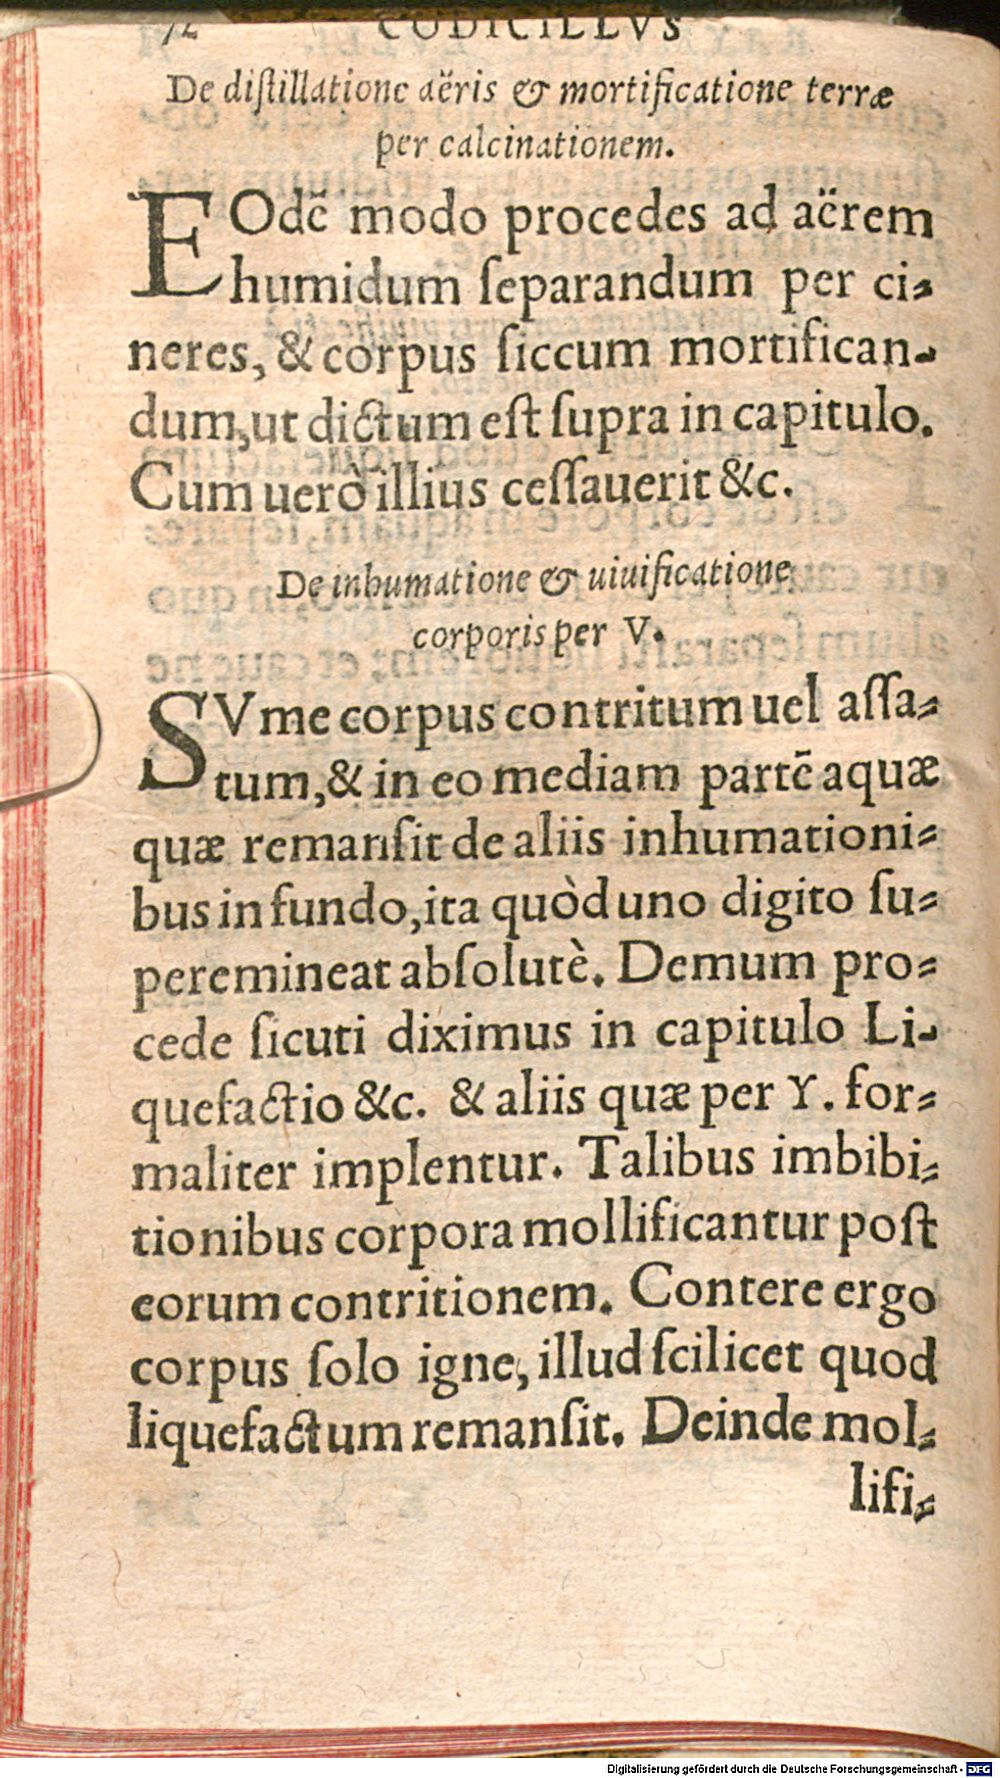 72 CODICILLVS
De diſtillatione aëris & mortificatione terræ
per calcinationem.
EOdē modo procedes ad aërem
humidum ſeparandum per ci-
neres, & corpus ſiccum mortifican-
dum, ut dictum eſt ſupra in capitulo.
Cum uerò illius ceſſauerit &c.
De inhumatione & uiuificatione
corporis per V.
SVme corpus contritum uel aſſa-
tum, & in eo mediam partē aquæ
quæ remanſit de aliis inhumationi-
bus in fundo, ita quòd uno digito ſu-
peremineat abſolutè. Demum pro-
cede ſicuti diximus in capitulo Li-
quefactio &c. & aliis quæ per Y. for-
maliter implentur. Talibus imbibi-
tionibus corpora mollificantur poſt
eorum contritionem. Contere ergo
corpus ſolo igne, illud ſcilicet quod
liquefactum remanſit. Deinde mol-
lifi-
Digitalisierung gefördert durch die Deutsche Forschungsgemeinschaft - DFG